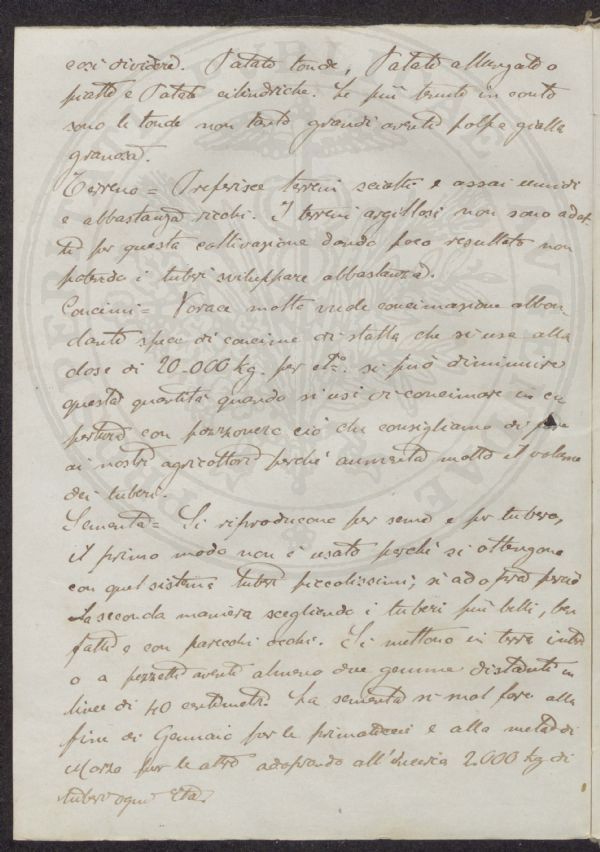 così dividere. Patate tonde, Patate allungate o
piatte e Patate cilindriche. Le più tenute in conto
sono le tonde non tanto grandi aventi polpa gialla
granosa.
Terreno = Preferisce terreni sciolti e assai umidi
e abbastanza ricchi. I terreni argillosi non sono adat-
ti per questa coltivazione dando poco resultato non
potendo i tuberi sviluppare abbastanza.
Concimi = Vorace molto vuole concimazione abbon-
dante specie di concime di stalla che si usa alla
dose di 20.000 kg. per eta. si può diminuire
questa quantità quando si usi di concimare in co
pertura con pozzonero ciò che consigliamo di fare
ai nostri agricoltori perché aumenta molto il volume
dei tuberi.
Sementa = Si riproducono per seme e per tubero,
il primo modo non è usato perchè si ottengono
con quel sistema tuberi piccolissimi; si adopera perciò
la seconda maniera scegliendo i tuberi più belli, ben
fatti e con parecchi occhi. Si mettono in terra interi
o a pezzetti aventi almeno due gemme distanti in
linee di 40 centimetri. La sementa si suol fare alla
fine di Gennaio per le primaticcie e alla metà di
Marzo per le altre adoprando all'incirca 2.000 kg di
tuberi ogni Eta.